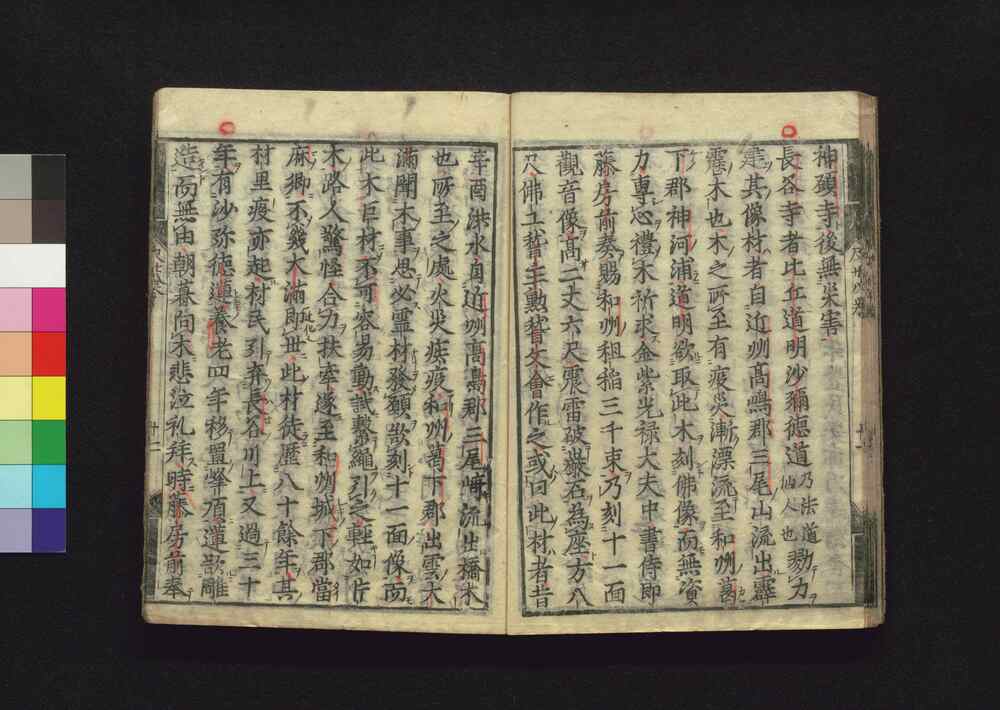 神頭寺後無災害
長谷寺者比丘道明沙彌德道乃法道仙人也勠力
建其像材者自近州高嶋郡三尾山流出霹
靂木也木之所至有疫災漸漂流至和州葛
下郡神河浦道明欲取此木刻佛像而無資
力専心禮木祈求金紫光禄大夫中書侍郎
藤房前奏賜和州租稲三千束乃刻十一面
觀音像高二丈六尺震雷破巖石為座方八
尺佛工稽主勲稽文會作之或曰此材者昔
辛酉洪水自近州高嶌郡三尾﨑流出橋木
也所至之處火災疾疫和州葛下郡出雲大
滿聞木事思必霊材發願欲刻十一面像而
此木巨材不可容易動試繫繩引之軽如片
木路人驚怪合力扶牽遂至和州城下郡當
麻郷不幾大滿即世此材徒歴八十餘年其
村里疫亦起村民引弃長谷川上又過三十
年有沙弥徳道養老四年移置峰項造欲雕
造而無由朝暮向木悲泣礼拜時藤房前奉
十二